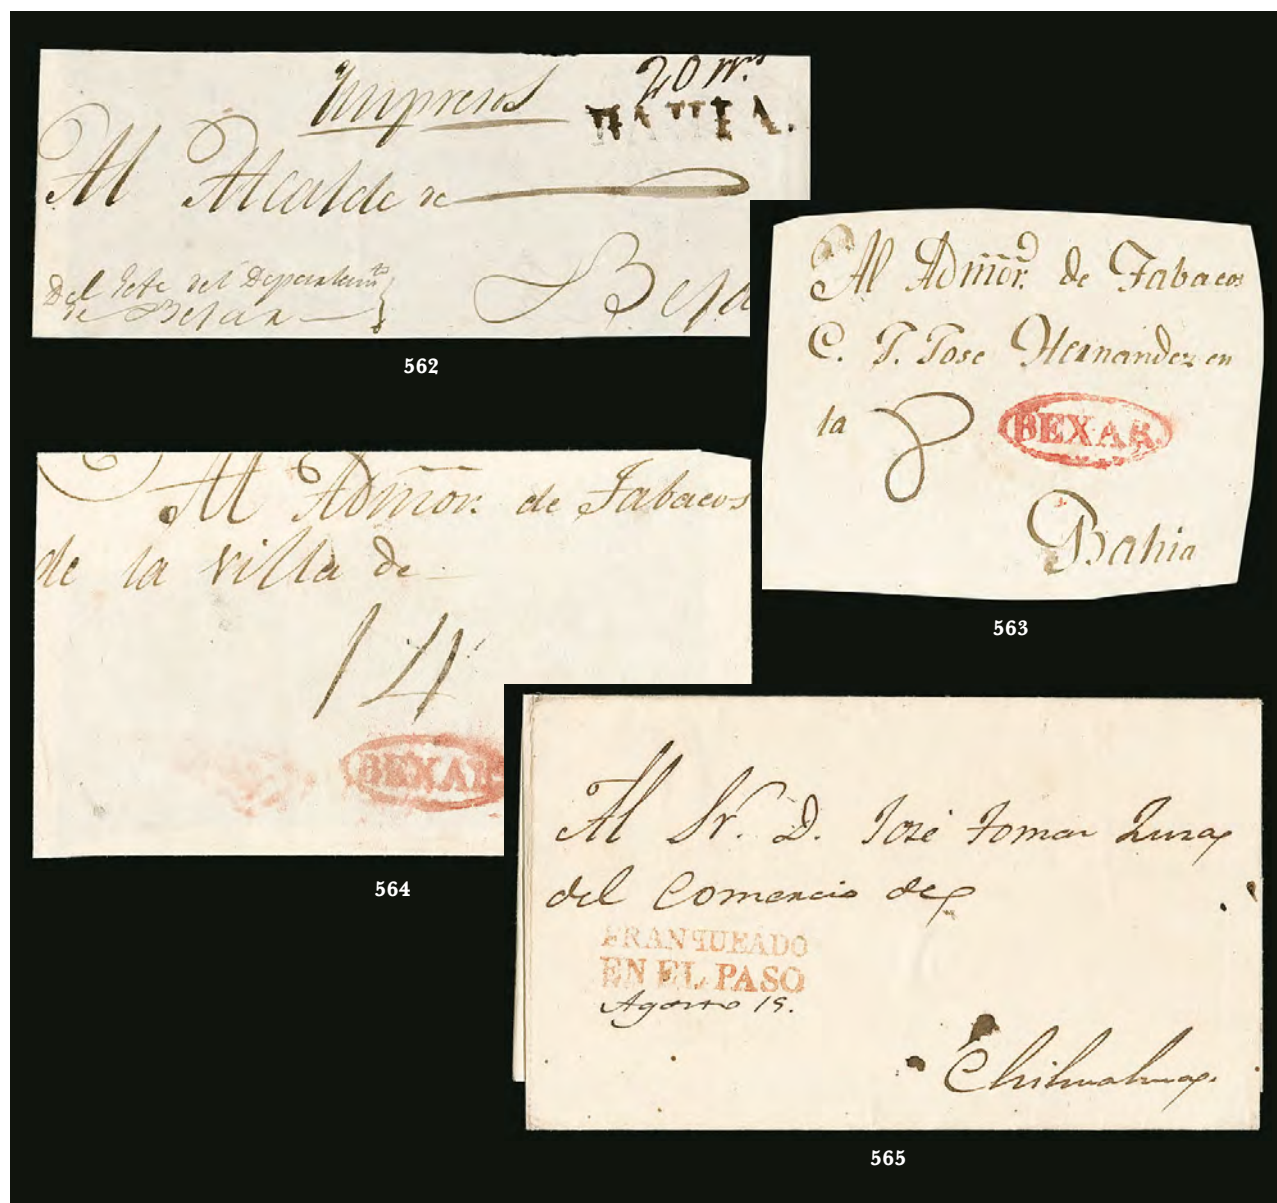 Impresos
20 rr.s
BAHIA.
Al Alcalde de
Del Gefe del Departam.to
de Bejar
Beja
562
Al Admor. de Tabacos
C. J. Jose Hernandez en
la
BEXAR.
Bahia
563
Al Admor. de Tabacos
de la villa de
14
BEXAR
564
Al Sr. D. José Tomas
del Comercio de
FRANQUEADO
EN EL PASO
Agosto 19.
Chihuahua.
565